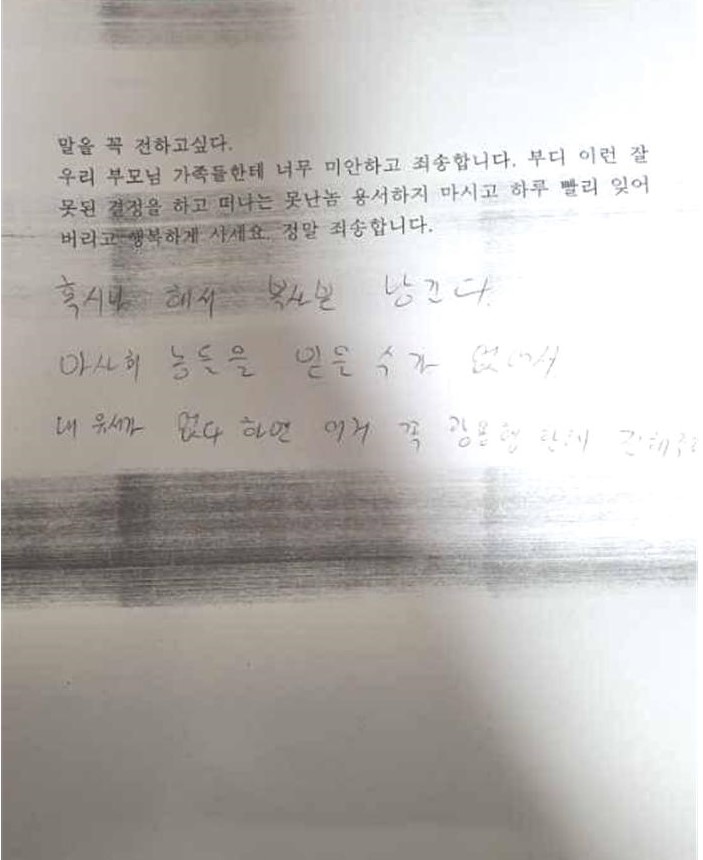 말을 꼭 전하고싶다.
우리 부모님 가족들한테 너무 미안하고 죄송합니다. 부디 이런 잘
못된 결정을 하고 떠나는 못난놈 용서하지 마시고 하루 빨리 잊어
버리고 행복하게 사세요. 정말 죄송합니다.
혹시나 해서 복사본 남긴다.
마사회 놈들을 믿을 수가 없어서
내 유서가 없다 하면 이거 꼭